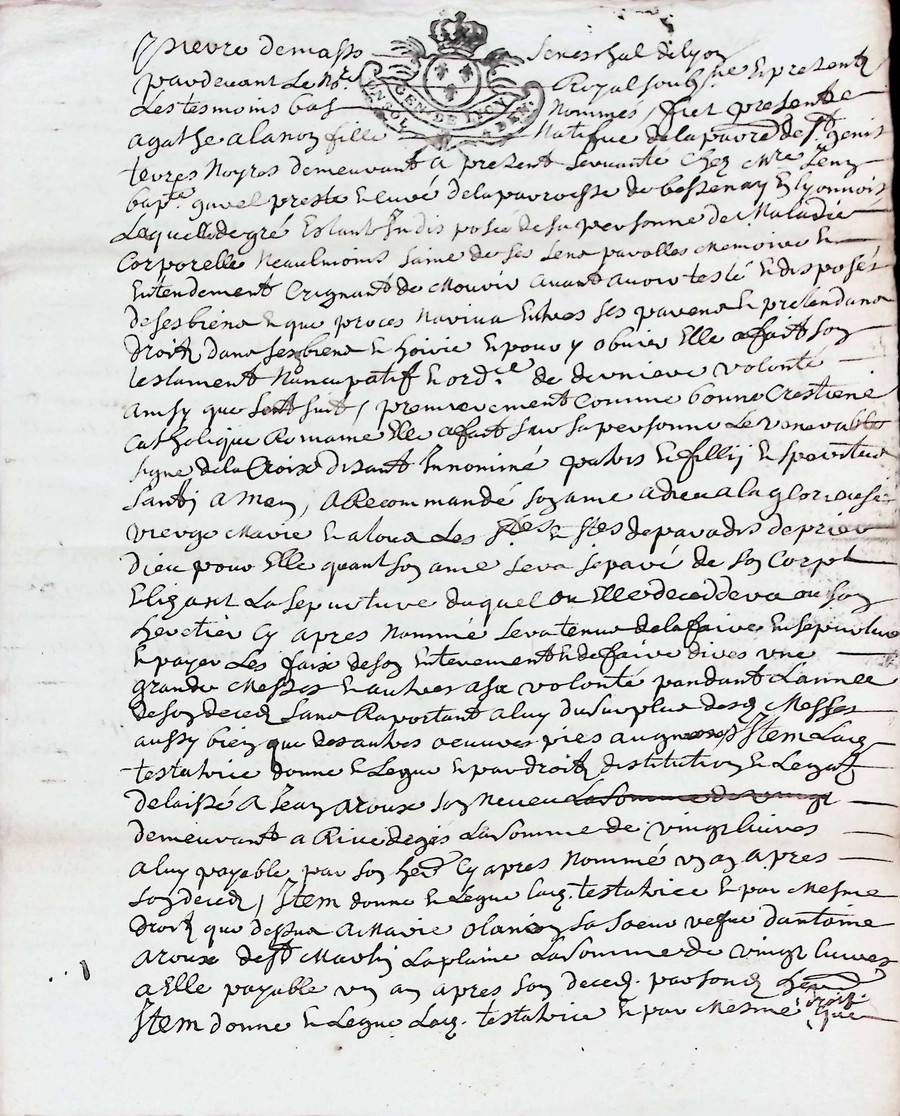 pierre demass seneschal de lyon
pardevant le no.re Royal soubs.ne et present
Les tesmoins bas Nommés, fut presente
GEN. DE LYON
UN SOL
agathe alanon fille Natifue de la parre de s.t genis
terres Noyres demeurant a present servante chez M.re Jean
bap.te gavel prestre et curé de la parroisse de bessenay en lyonnois
Laquelle de gré Estant Indisposée de sa personne de Maladie
Corporelle Neaulmoins saine de ses sens parolles Memoire et
Entendement Crignant de Mourir avant avoir testé et disposés
de ses biens et que proces Naviva Entres ses parens et pretendans
droitz dans ses biens et hoirie et pour y obvier Elle a fait son
testament Nuncupatif et ord.re de derniere volonté
ainsy que sent suit, premierement Comme bonne Crestiene
Catholique Romaine Elle a fait sur sa personne Le venerable
signe de la Croix disant In nomine patris et fillij et speritus
santi amen, a Recommandé son ame a dieu a la glorieuse
vierge Marie et a tous Les sts et stes de paradis de prier
Dieu pour Elle quant son ame sera separé de son Corps
Elizant La sepurture duquel ou Elle deceddera ou son
heretier Cy apres Nommé sera tenus de la faire Ensepurturer
et payer Les fraix de son Enterement et de faire dires une
grande Messes et autres a sa volonté pandant L'annee
de son deced sans Raportant a luy du surplus desd Messes
aussy bien que des autres oeuvres pies Item Lad.
testatrice donne et Legue et par droitz distitution et Legat
delaissé a Jean aroux son Neveu La Somme de vingt
demeurant a Rive de gies La Somme de vingt livres
a luy payable par son her.er Cy apres Nommé un an apres
son deced, Item donne et Legue Lad. testatrice et par Mesme
droit que dessus a Marie olanon sa soeur vefue dantoine
aroux de s.t Martin La plaine La Somme de vingt livres
a Elle payable un an apres son deced. par sond
Item donne et Legue Lad. testatrice et par Mesme droit
que